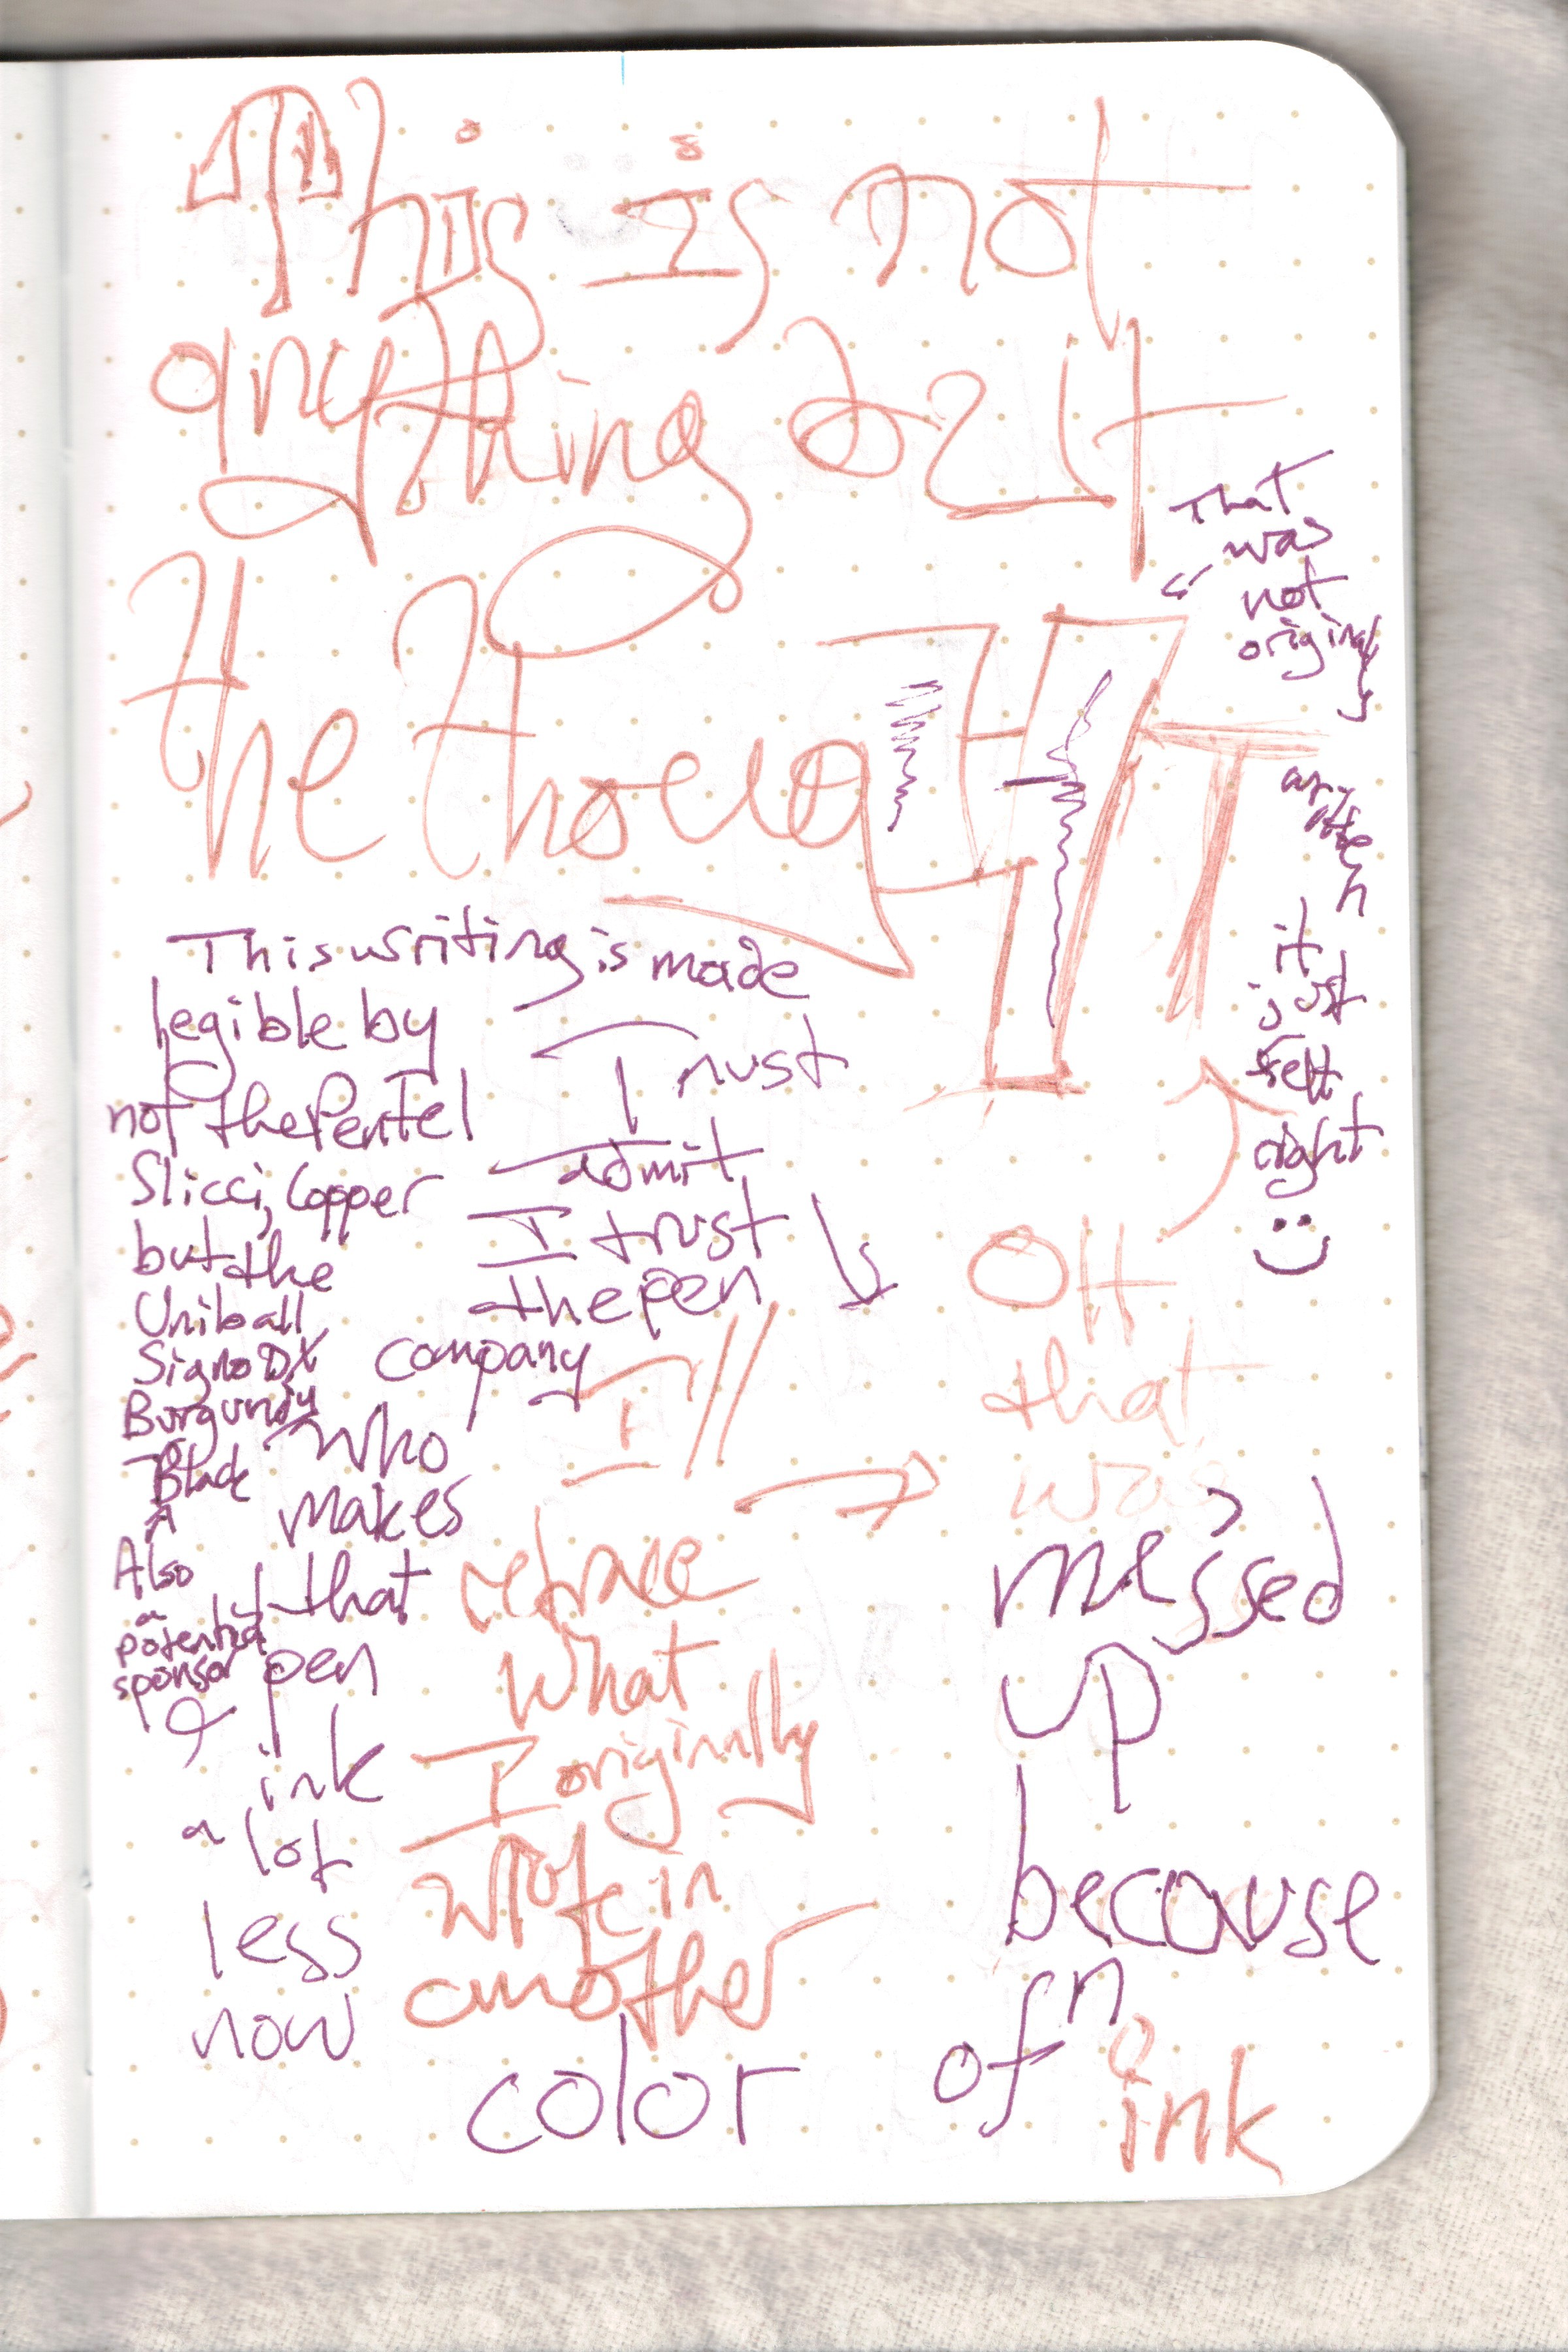 This is not
anything as it
the thought
That
was
not
originally
written
it
just
felt
right
This writing is made
legible by
not the Pentel
Slicci, Copper
but the
Uniball
Signo DX
Burgundy
Black
Also
a
potential
sponsor
Trust
I
admit
I trust
the pen
company
Who
makes
that
pen
ink
a lot
less
now
I'll
retrace
what
I originally
wrote in
another
color
OH
that
was
messed
up
because
of no
ink